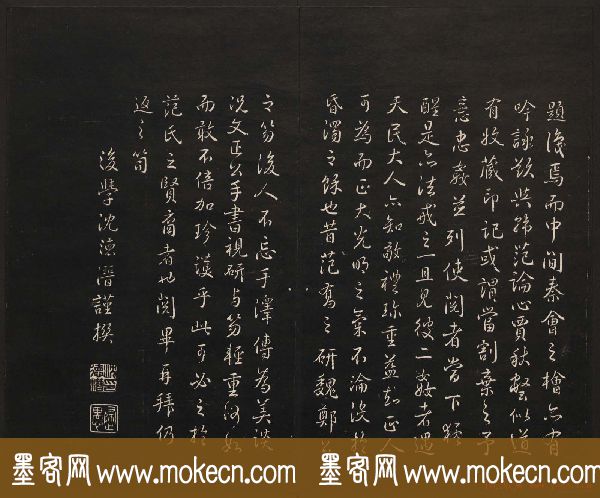 題後焉而中間秦會之檜亦有
吟詠欲與韓范論心賈秋壑似道
有收藏印記或謂當割棄之予
意忠姦並列使閱者當下猛
醒是亦法戒之一且見彼二姦者遇
天民大人亦知敬禮珍重益知正人
可為而正大光明之氣不淪沒於
昏濁之餘也昔范喬之研魏鄭
之笏後人不忘手澤傳為美談
況文正公手書視研與笏輕重何如
而敢不倍加珍護乎此可必之於
范氏之賢裔者也閱畢再拜仍
返之笥
後學沈德潛謹撰
墨客网 www.mokecn.com 墨客网 www.mokecn.com